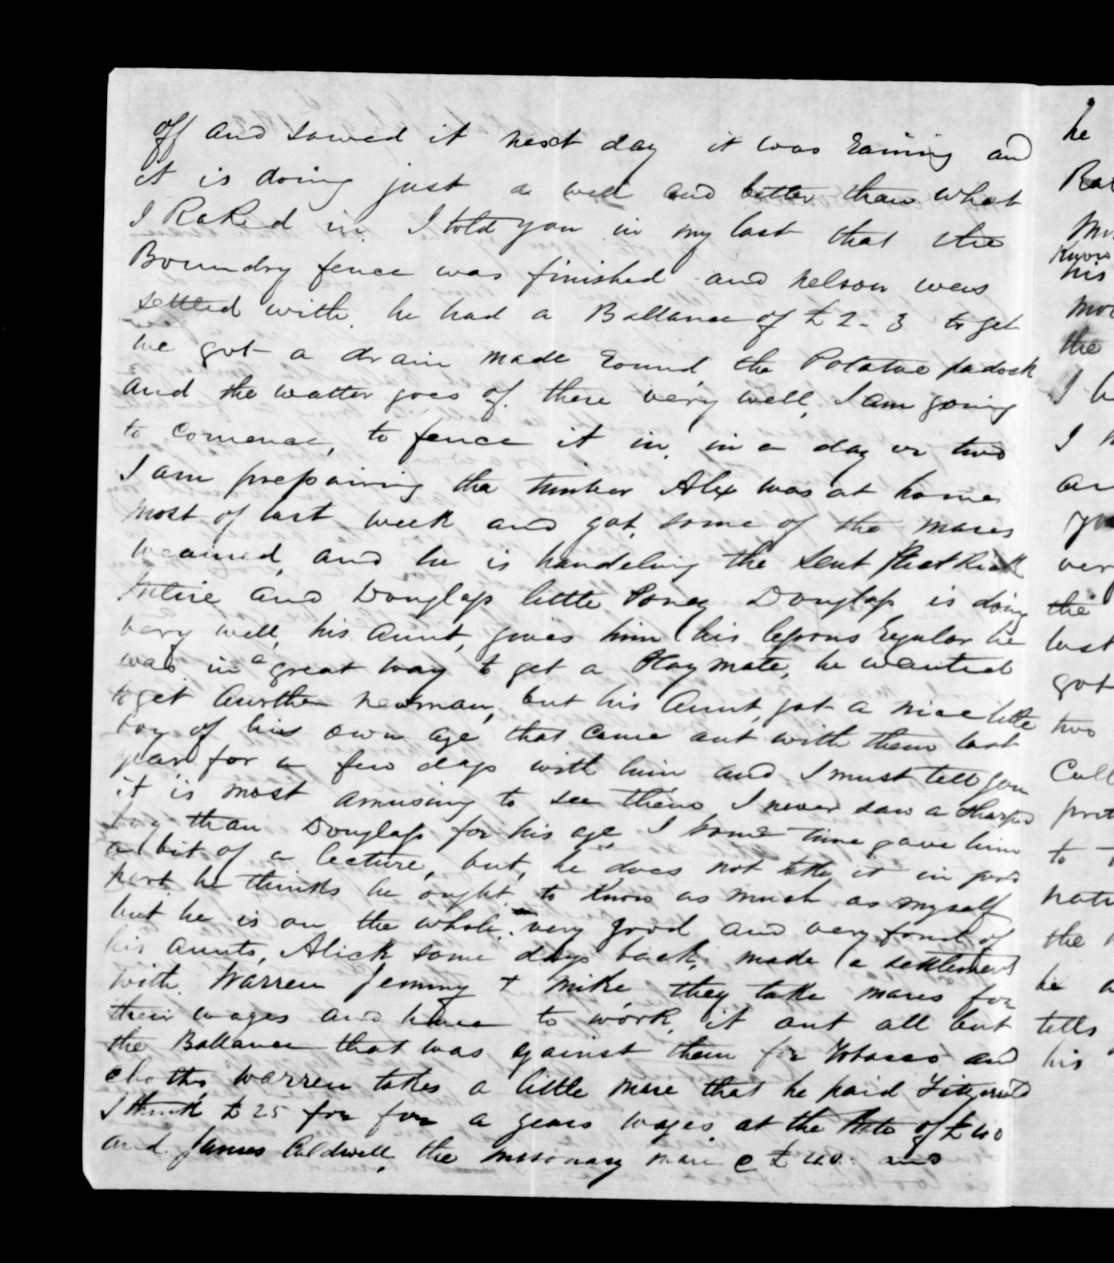 off and sowed it next day it was Raining and
it is doing just as well and better than what
I Raked in. I told you in my last that the
Boundry fence was finished and nelson was
settled with. he had a Ballance of £2-3 to get
we got a drain made Round the Potatoe padock
and the watter goes of there very well, I am going
to comence, to fence it in, in a day or two
I am prepairing the timber Alex was at home
most of last week and got some of the mares
weained, and he is handeling the
Intire and Douglass little Poney Douglass is doing
very well, his Aunt, gives him his lessons Regular he
was in a great way to get a Playmate, he wanted
to get Another newman, but his Aunt got a nice little
boy of his own age that came out with them last
year for a few days with him and I must tell you
it is most amusing to see them I never saw a sharper
boy than Douglass for his age I some time gave him
a bit of a lecture, but, he does not take it in good
part he thinks he ought to know as much as myself
but he is on the whole very good and very fond of
his aunts, Alick some days back, made a settlement
with Warren Jemmy + Mike they take mares for
their wages and have to work it out all but
the Ballance that was against them for Tobacco and
cloths, Warren takes a little mare that he paid
I think £25 for for a years wages at the Rate of £40
and James Caldwell, the missonary mare @ £40. and
he
I
the
very
the
last
got
two
to
the
he
tells
his